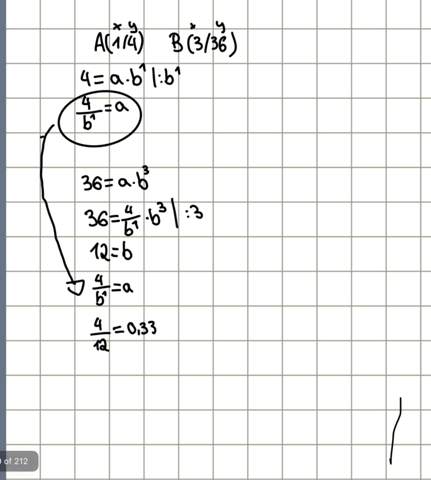 x y x y
A(1/4) B(3/36)
4 = a·b¹ |:b¹
4/b¹ = a
36 = a·b³
36 = 4/b¹ · b³ | :3
12 = b
4/b¹ = a
4/12 = 0,33
of 212